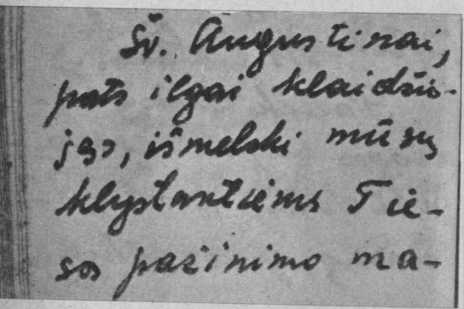 Šv. Augustinai,
pats ilgai klaidžio-
jęs, išmelski mūsų
klystantiems Tie-
sos pažinimo ma-